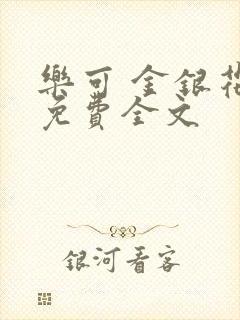 樂可 金銀花
免費全文
銀河看客